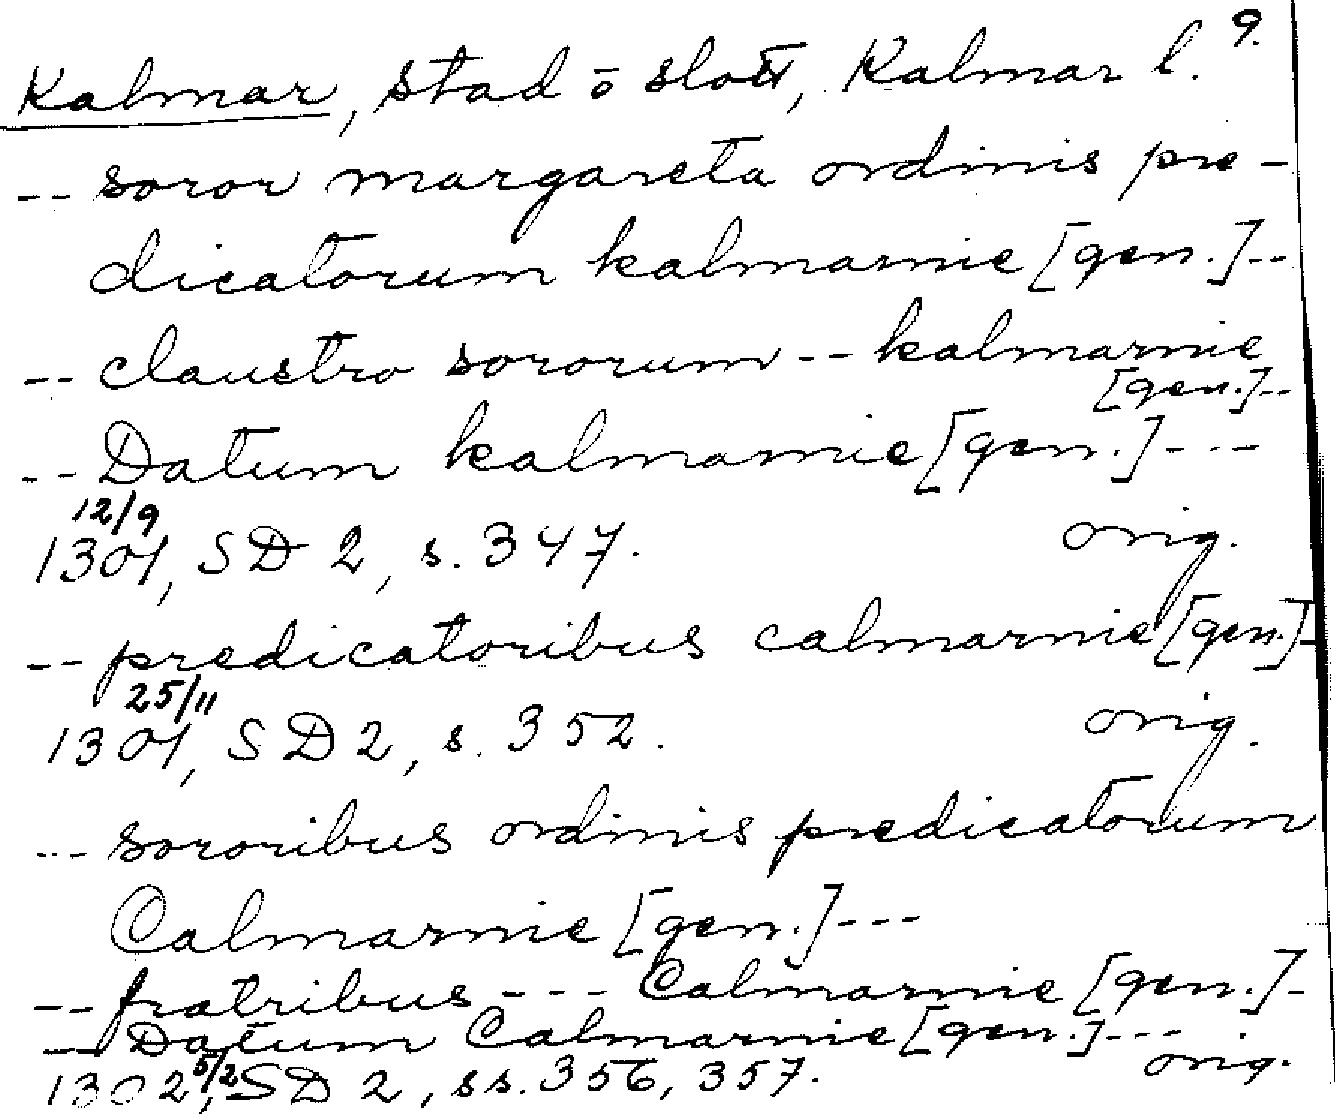 9.
Kalmar, stad o slott, Kalmar l.
-- soror margareta ordinis pre-
dicatorum kalmarnie [gen.]--
-- claustro sororum -- kalmarnie
[gen.]--
-- Datum kalmarnie [gen.]---
12/9
1301, SD 2, s. 347. orig.
-- predicatoribus calmarnie [gen.]-
25/11
1301, SD 2, s. 352. orig.
--- sororibus ordinis predicatorum
Calmarnie [gen.]---
-- fratribus --- Calmarnie [gen.]-
-- Datum Calmarnie [gen.]---
1302 5/2, SD 2, ss. 356, 357. orig.